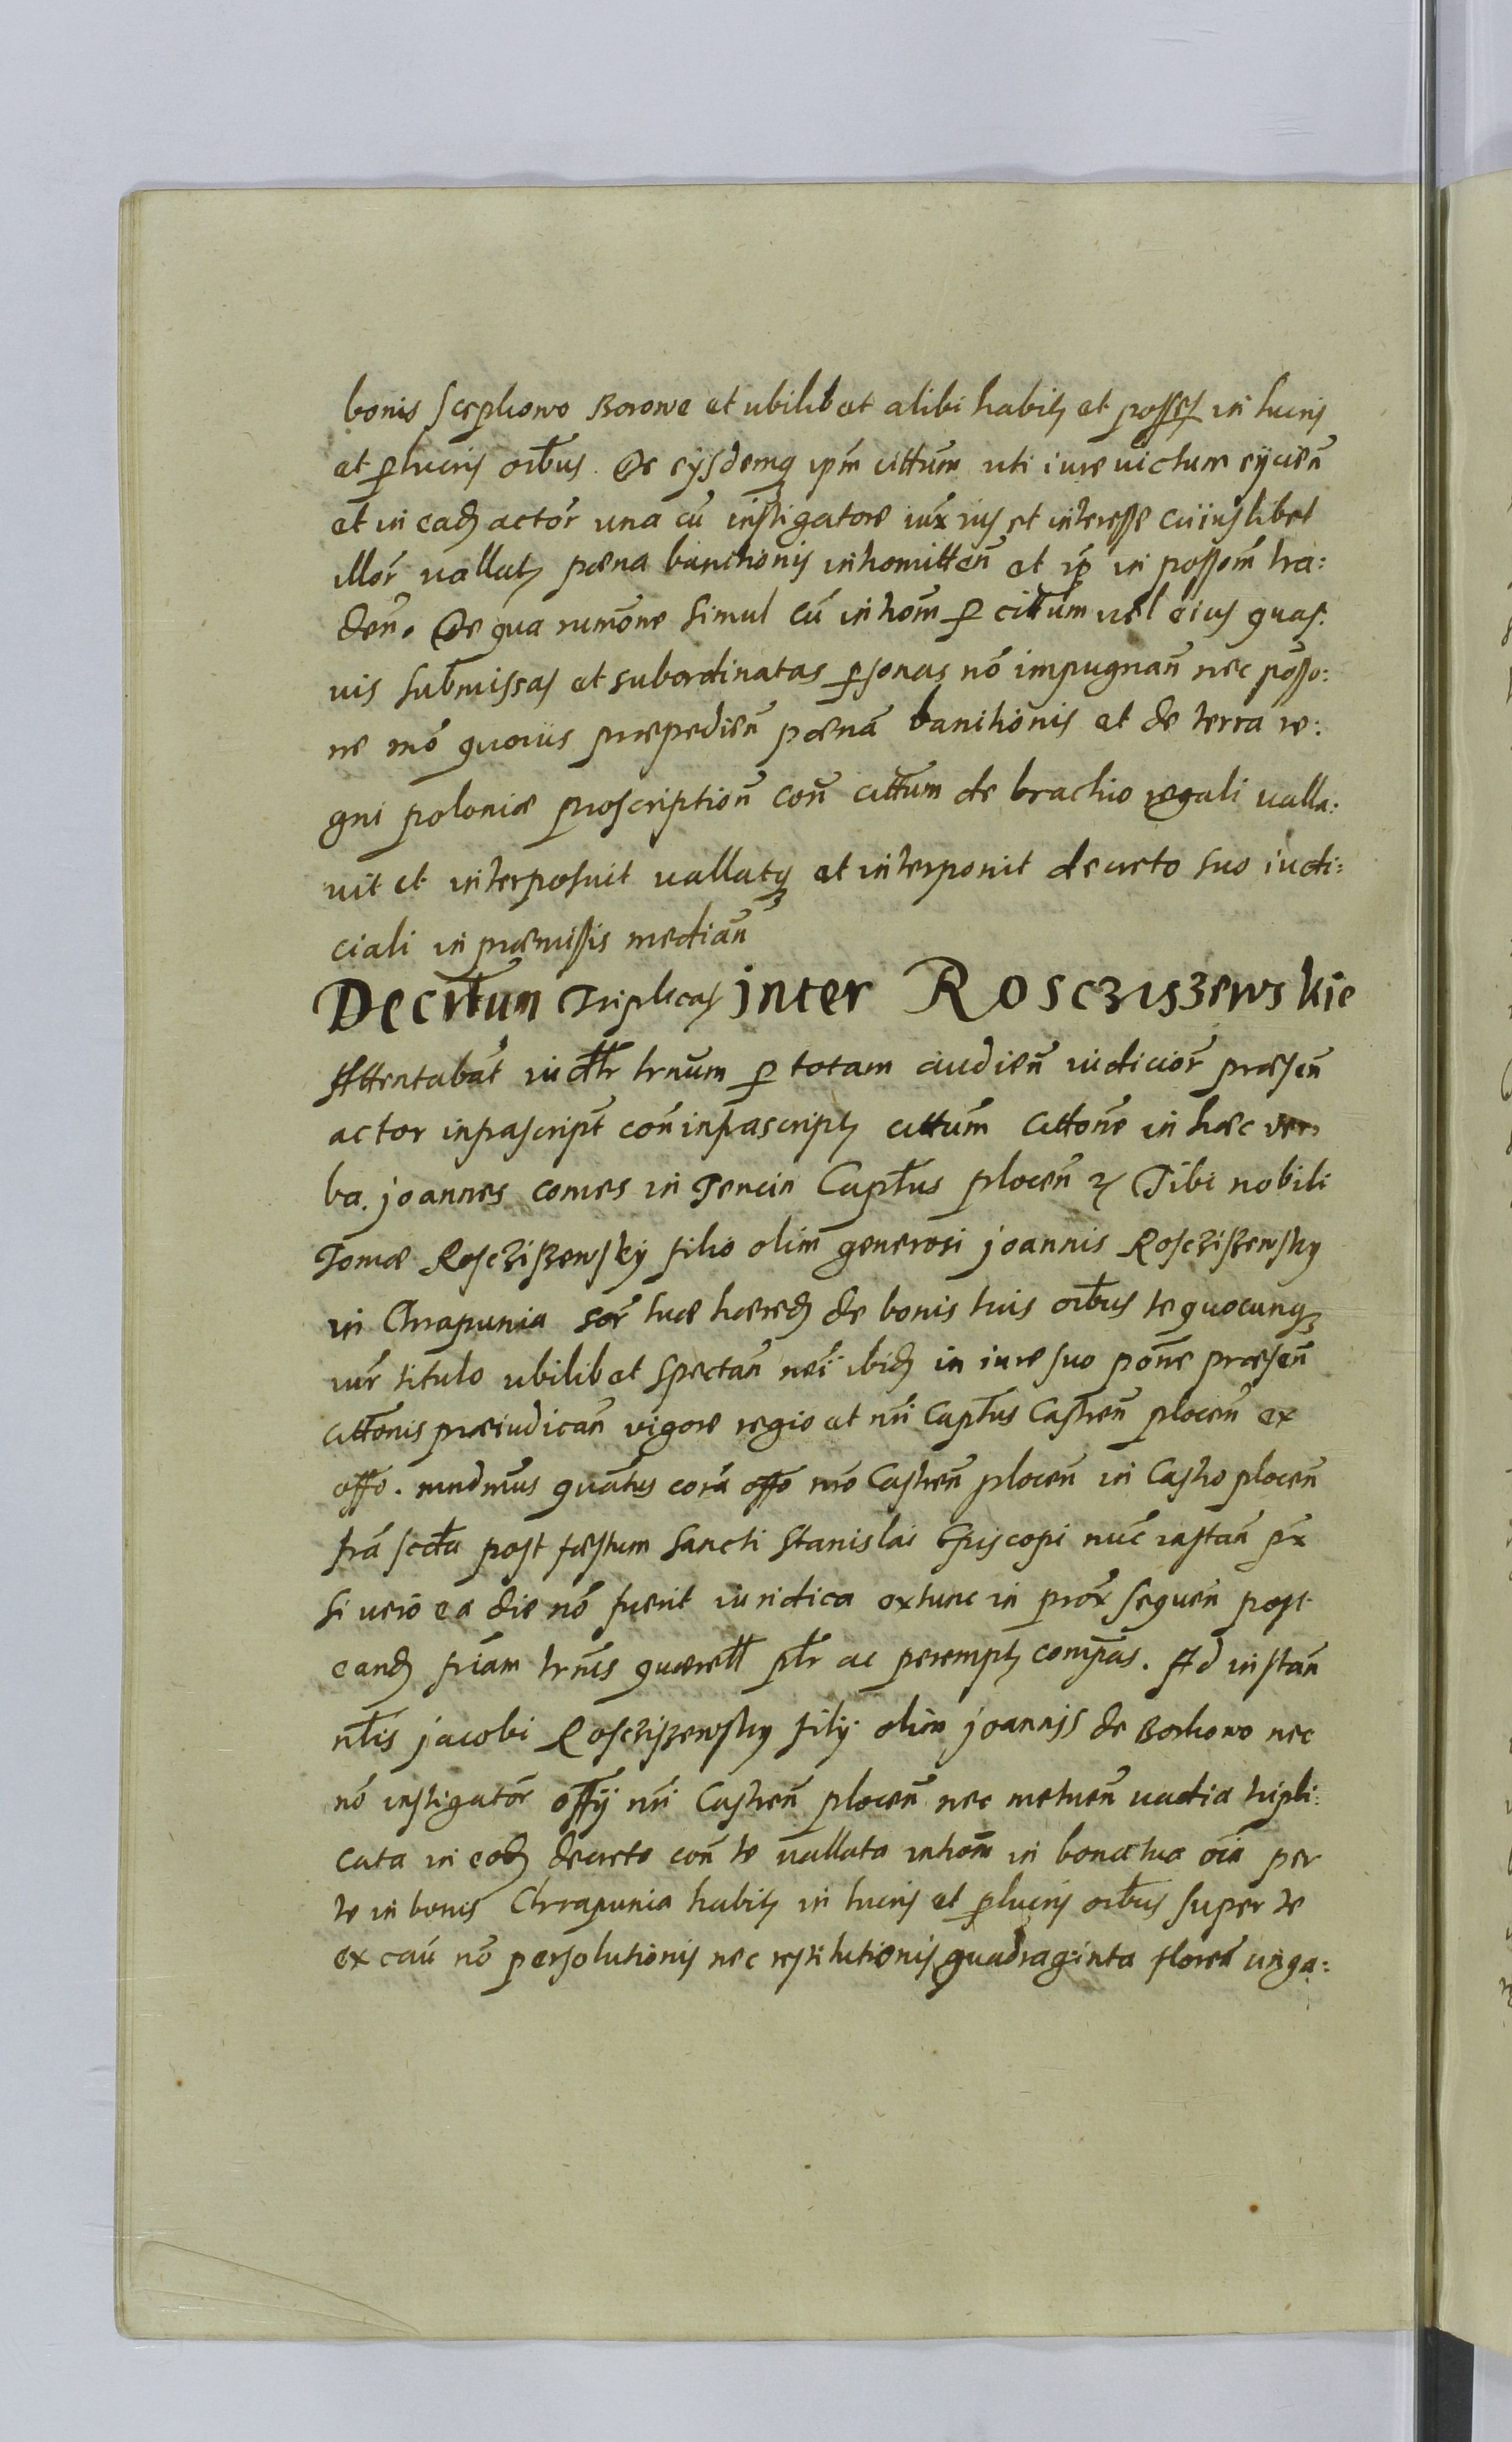 bonis Scephowo Borowe et ubilibet alibi habitȝ et possesȝ in lucris
et perlucris oībus. De eysdemqȝ ipm̄ cittum̄ uti iure uictum eijcien̄
et in eadȝ actor̄ una cū instigatore iux̄ ius et interesse cuiuslibet
illor̄ uallatȝ pæna banitionis intromitten̄ et ip̄ in possom̄ tra:
den̄. De qua rumōne simul cū introm̄ per cittum̄ uel eius quas:
uis submissas et subordinatas personas nō impugnan̄ nec posso:
ne mō quouis præpedien̄ pænā banitionis et de terra re:
gni poloniæ proscription̄ con̄ cittum̄ de brachio regali ualla:
uit et interposuit uallatqȝ et interponit decreto suo iudi:
ciali in præmissis median̄
Decrtum̄ Triplicaȝ inter Roscziszewskie
Attentabat̄ iudtr̄ trnum̄ per totam audien̄ iudicior̄ præsen̄
actor infrascript̄ con̄ infrascriptȝ cittum̄ cittone in hæc ver
ba. joannes comes in Tencin Captus̄ plocen̄ ꝛ Tibi nobili
Tomæ Rosczißewskij filio olim generosi joannis Rosczißewsky
in Chrapunia sor̄ tuæ hæredȝ de bonis tuis oībus te quocunqȝ
iur̄ titulo ubilibet spectan̄ nēi ibidȝ in iure suo pōne præsen̄
cittonis præiudican̄ vigore regio et nr̄i Captus̄ Castren̄ plocen̄ ex
offo. mndmus̄ quatūs corā offo nr̄o Castren̄ plocen̄ in Castro plocen̄
frā scdā post fæstum sancti Stanislai Episcopi nuc̄ instan̄ px̄
si uero ea die nō fuerit iuridica extunc in prox̄ sequen̄ post
eandȝ friam̄ trn̄is quærell ptr̄ ac peremptȝ compas̄. Ad instan̄
nblis̄ jacobi Rosczißewsky filij olim joannis de Borkowo nec
nō instigator̄ offij nr̄i Castren̄ plocen̄ nec metuen̄ uadia tripli:
cata in eodȝ decreto con̄ te uallata introm̄ in bona tua oīa per
te in bonis Chrapunia habitȝ in lucris et perlucris oībus super te
ex cau̅ nō persolutionis nec restitutionis quadraginta floren̄ unga: